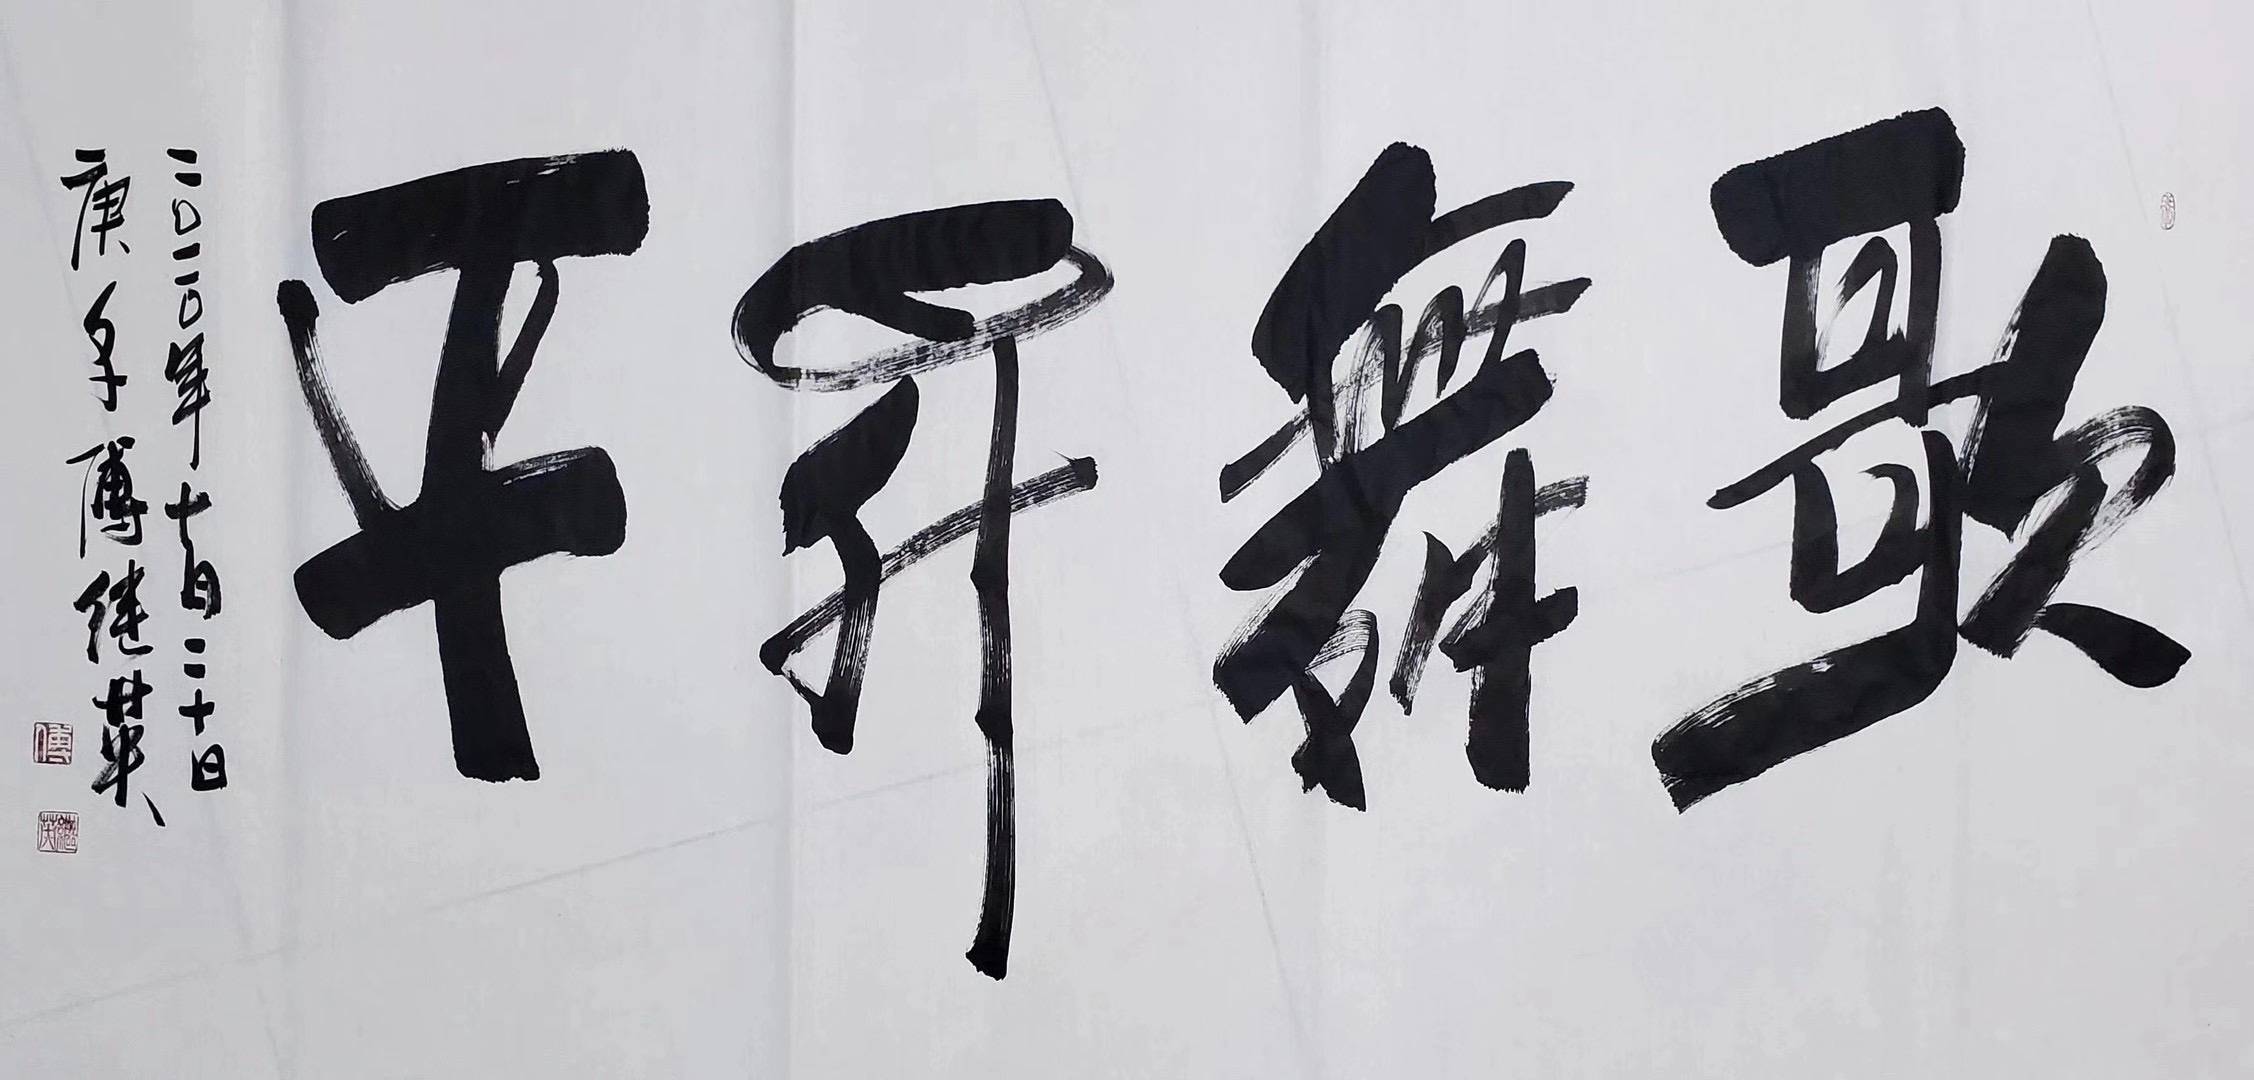 歌舞昇平
二〇二〇年十月二十日
庚子 傅继英
傅